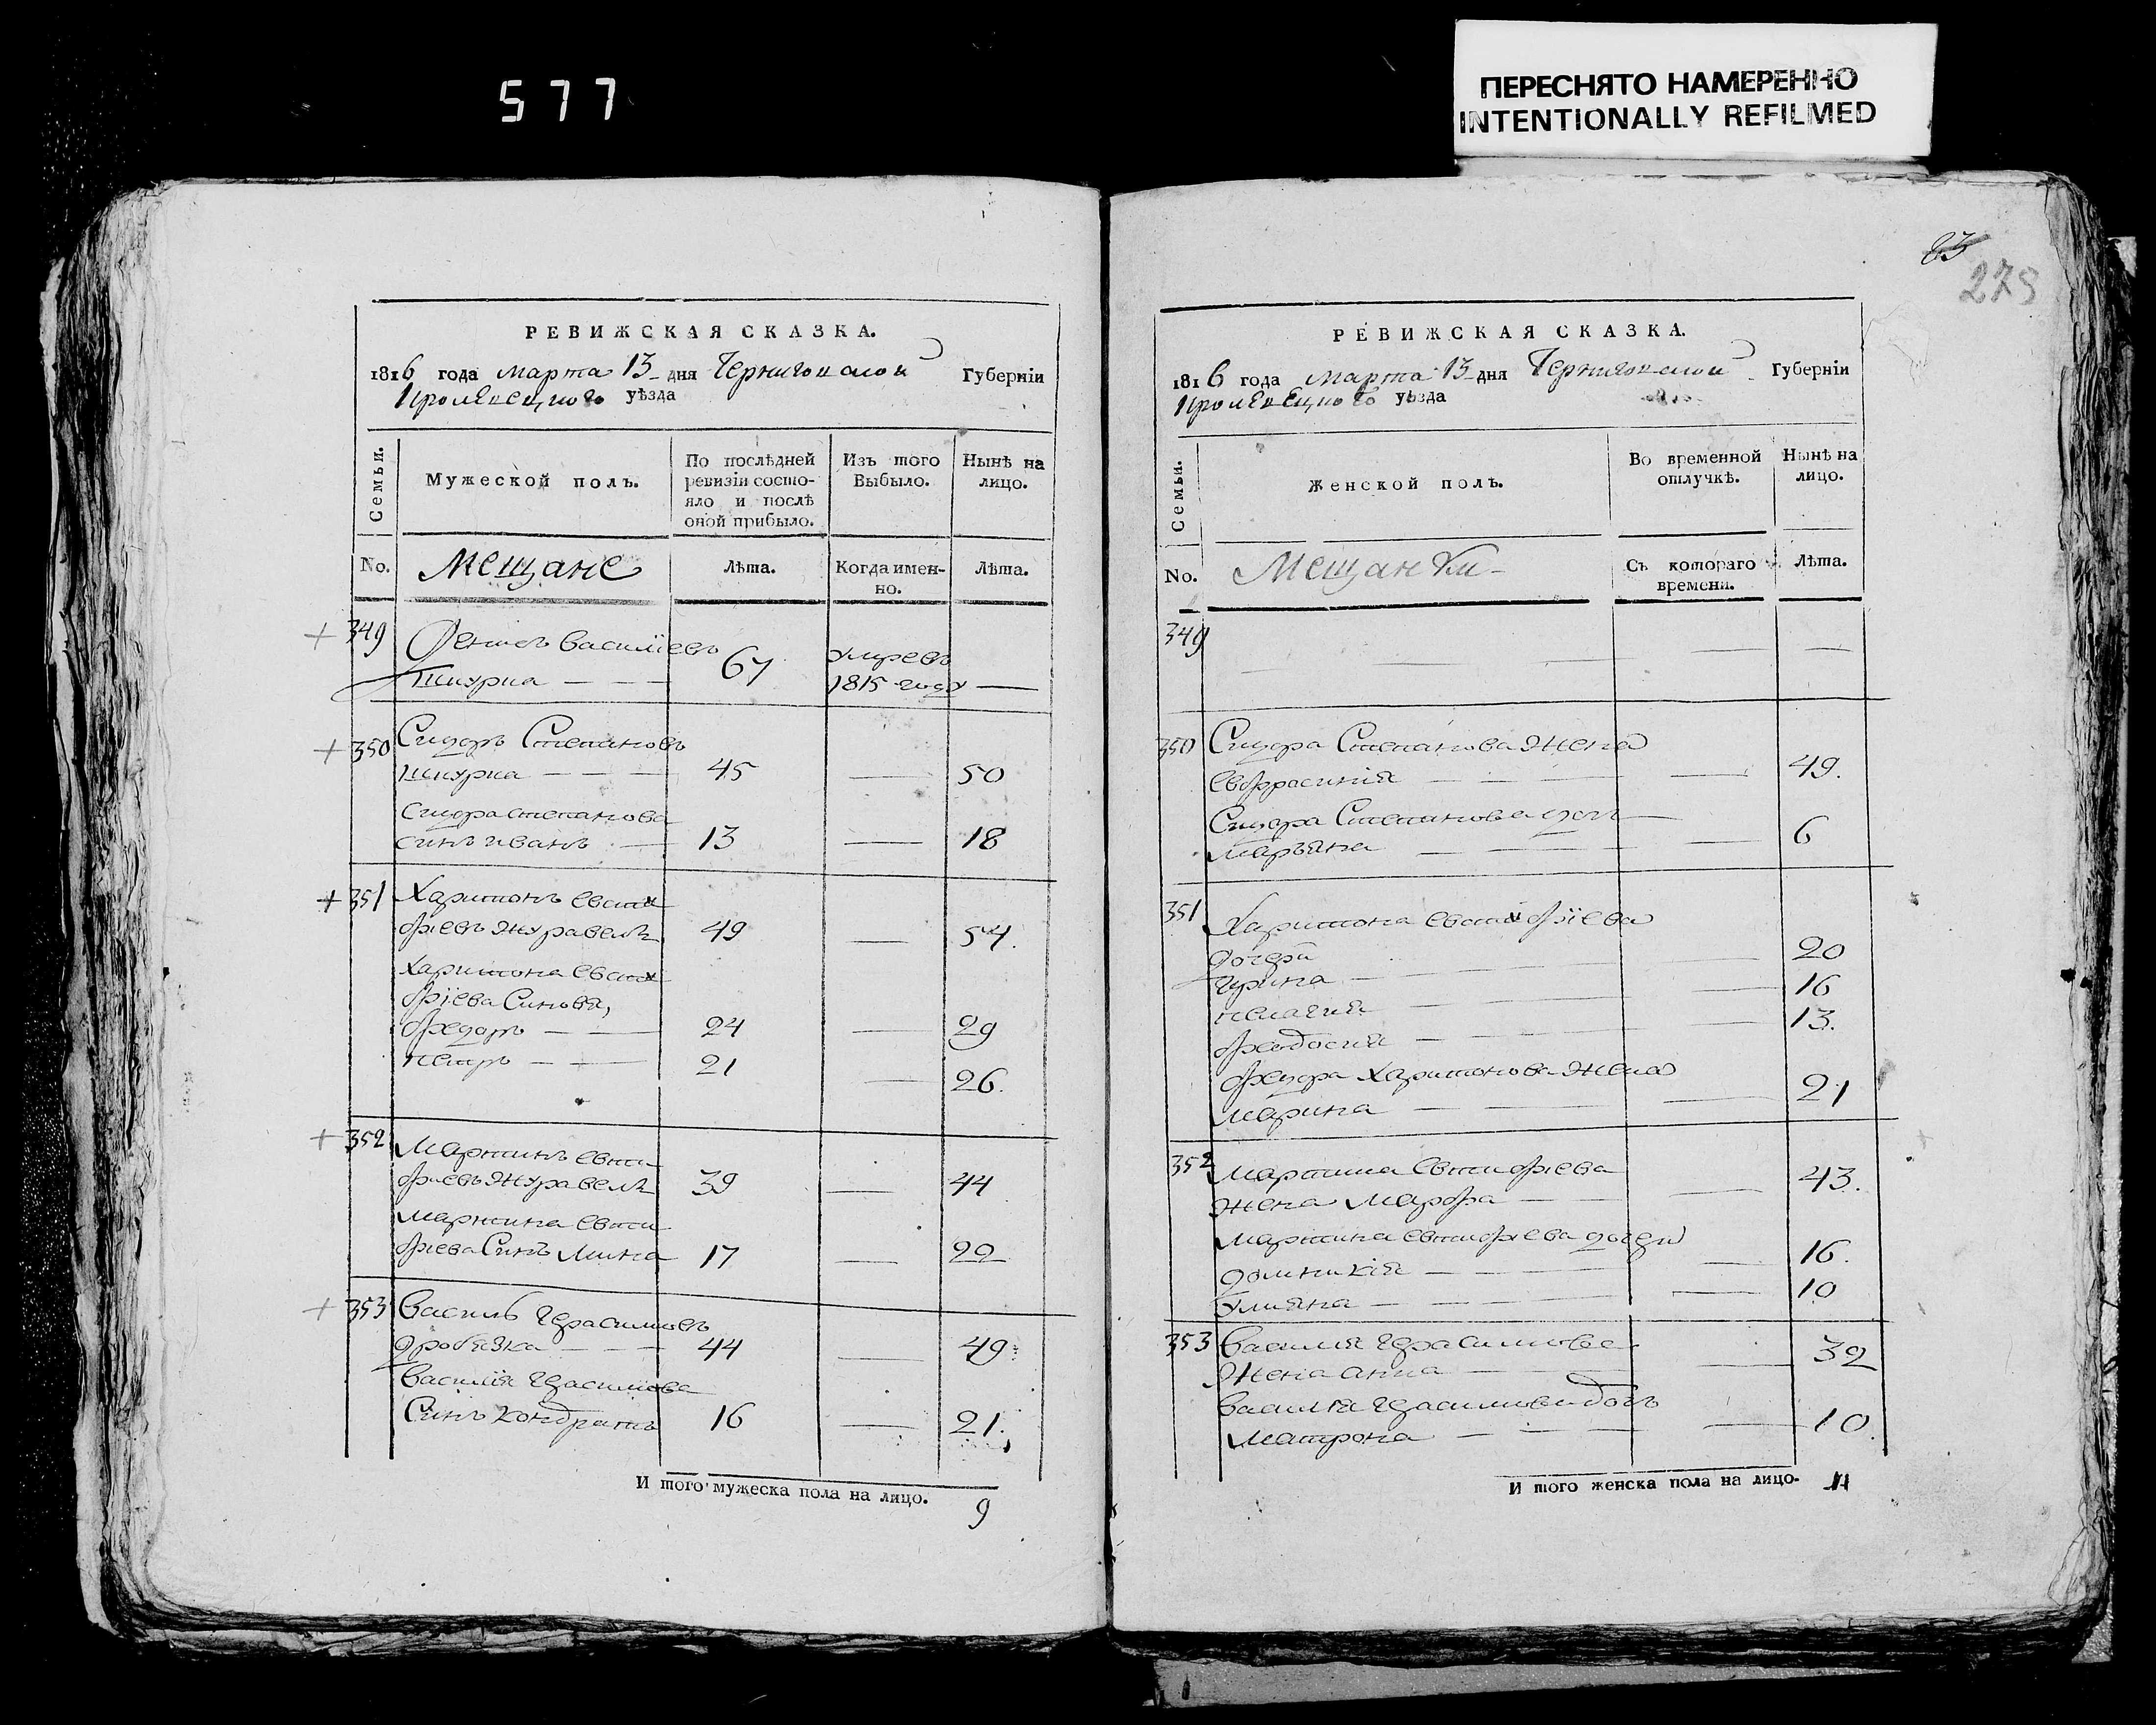 577
ПЕРЕСНЯТО НАМЕРЕННО
INTENTIONALLY REFILMED
РЕВИЖСКАЯ СКАЗКА.
1816 года марта 13 дня Черниговской Губерніи
Кролевецкого уѣзда
Семьи.
Мужеской полъ.
По послѣдней
ревизіи состо-
яло и послѣ
оной прибыло.
Изъ того
Выбыло.
Нынѣ на
лицо.
No.
Мещане
Лѣта.
Когда имен-
но.
Лѣта.
349
Василіевъ
Шкурка
67
умревъ
1815 году
350 Сидоръ Степановъ
шкурка 45 50
сидора степанова
синъ иванъ 13 18
351 Харитонъ Евста
фіевъ Журавель 49 54.
харитона Евста
фіева Синовя,
федоръ 24 29
петръ 21 26.
352 Мартинъ Евти
фиевъ Журавель 39 44
мартина Евти
фіева Синъ Мина 17 22
353 Василь Герасимовъ
дробязка 44 49
Василія Герасимова
Синъ Кондратъ 16 21.
И того мужеска пола на лицо. 9
83
РЕВИЖСКАЯ СКАЗКА.
1816 года марта 13 дня Черниговской Губерніи
Кролевецкого уѣзда
Семьи.
Женской полъ.
Во временной
отлучкѣ.
Нынѣ на
лицо.
No.
Мещанки
Съ котораго
времени.
Лѣта.
349
350 Сидора Степанова Жена
Евфрасинія 49.
Сидора Степанова дочъ
Маръяна 6
351 Харитона Евстафіева
дочери
ирина 20
пелагия 16
феодосия 13.
федора Харитонова Жена
Марина 21
352 Мартина Евтифіева
жена Марфа 43.
Мартина евтифіева дочери
домникія 16.
Улияна 10
353 Василия Герасимова
Жена анна 32
Василія Герасимова дочъ
Матрона 10.
И того женска пола на лицо. 11